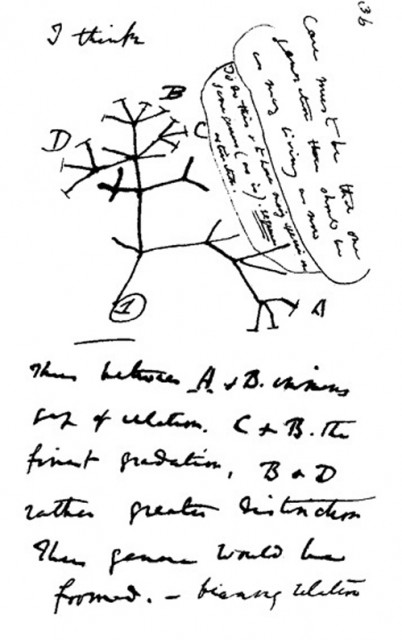 36
I think
Case must be that one
generation then should be
as many living as now
To do this & to have many species in
same genus (as is). requires
extinction.
B
D
C
1
A
Thus between A & B. immense
gap of relation. C & B. The
finest gradation, B & D
rather greater distinction
Thus genera would be
formed. — bearing relation